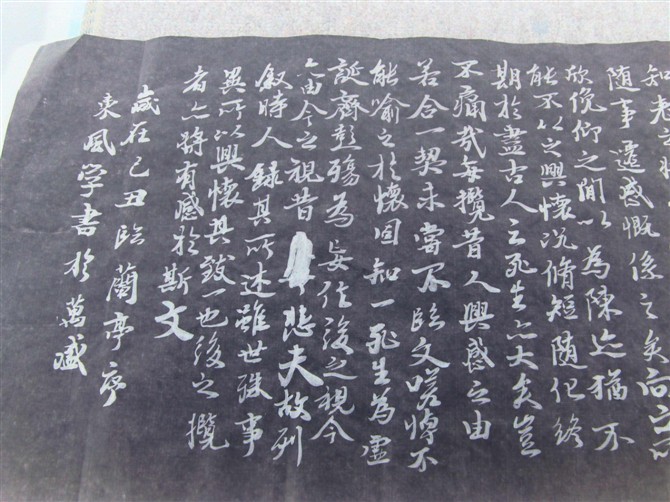 知老之將
随事遷感慨係之矣向之所
欣俛仰之間以為陳迹猶不
能不以之興懷況脩短随化終
期於盡古人云死生亦大矣豈
不痛哉每攬昔人興感之由
若合一契未嘗不臨文嗟悼不
能喻之於懷固知一死生為虛
誕齊彭殤為妄作後之視今
亦由今之視昔悲夫故列
叙時人錄其所述雖世殊事
異所以興懷其致一也後之攬
者亦將有感於斯文
歲在己丑臨蘭亭序
東風學書於萬盛